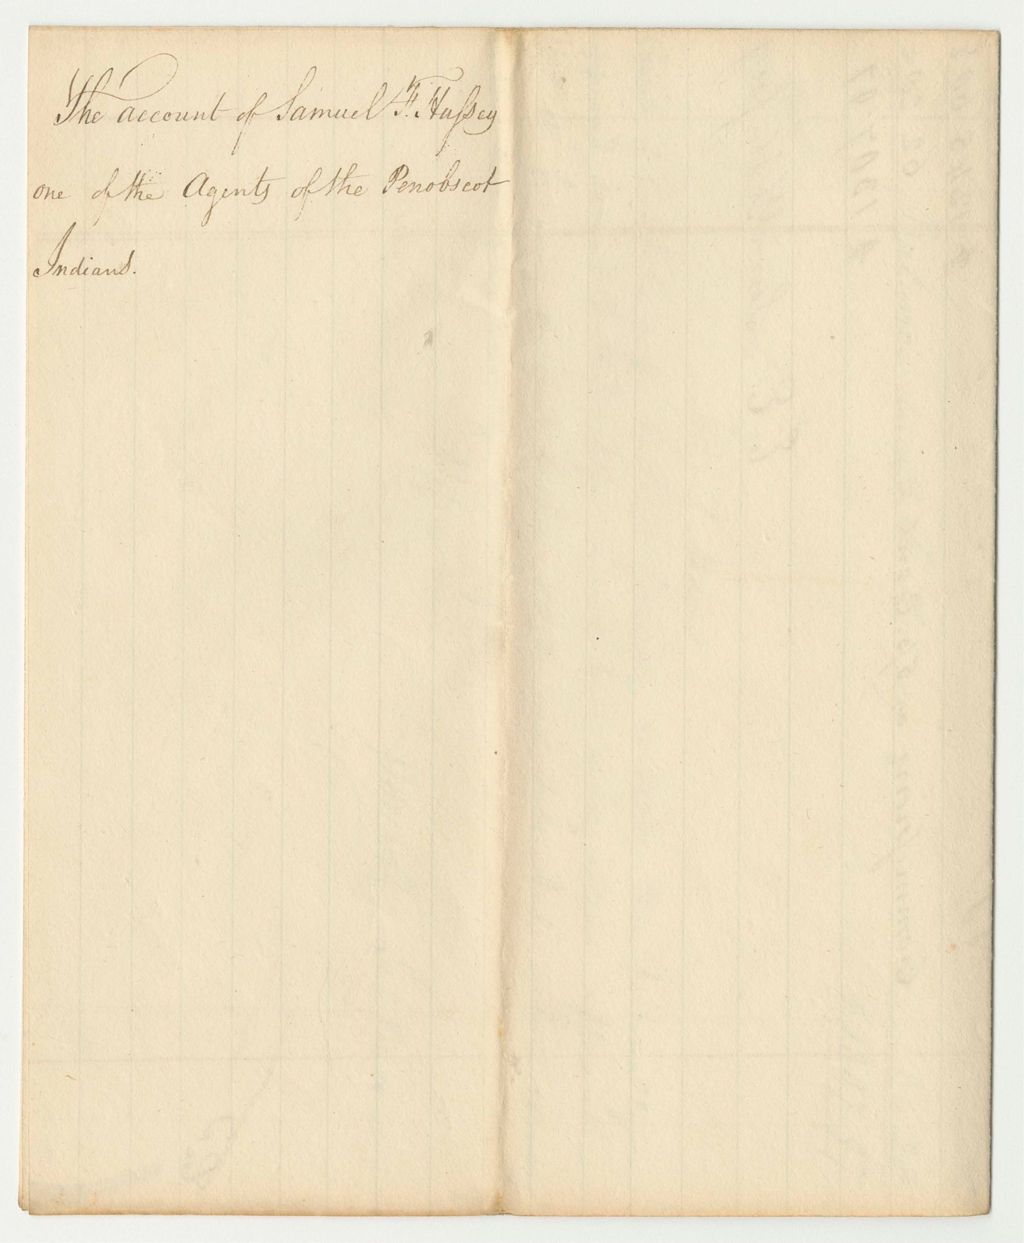 The account of Samuel F. Hussey
one of the Agents of the Penobscot
Indians.